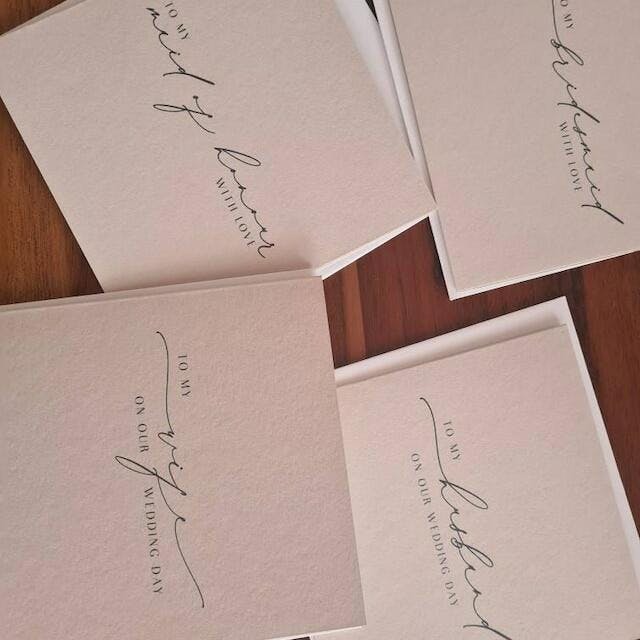 TO MY
maid of honour
WITH LOVE
TO MY
bridesmaid
WITH LOVE
TO MY
wife
ON OUR WEDDING DAY
TO MY
husband
ON OUR WEDDING DAY